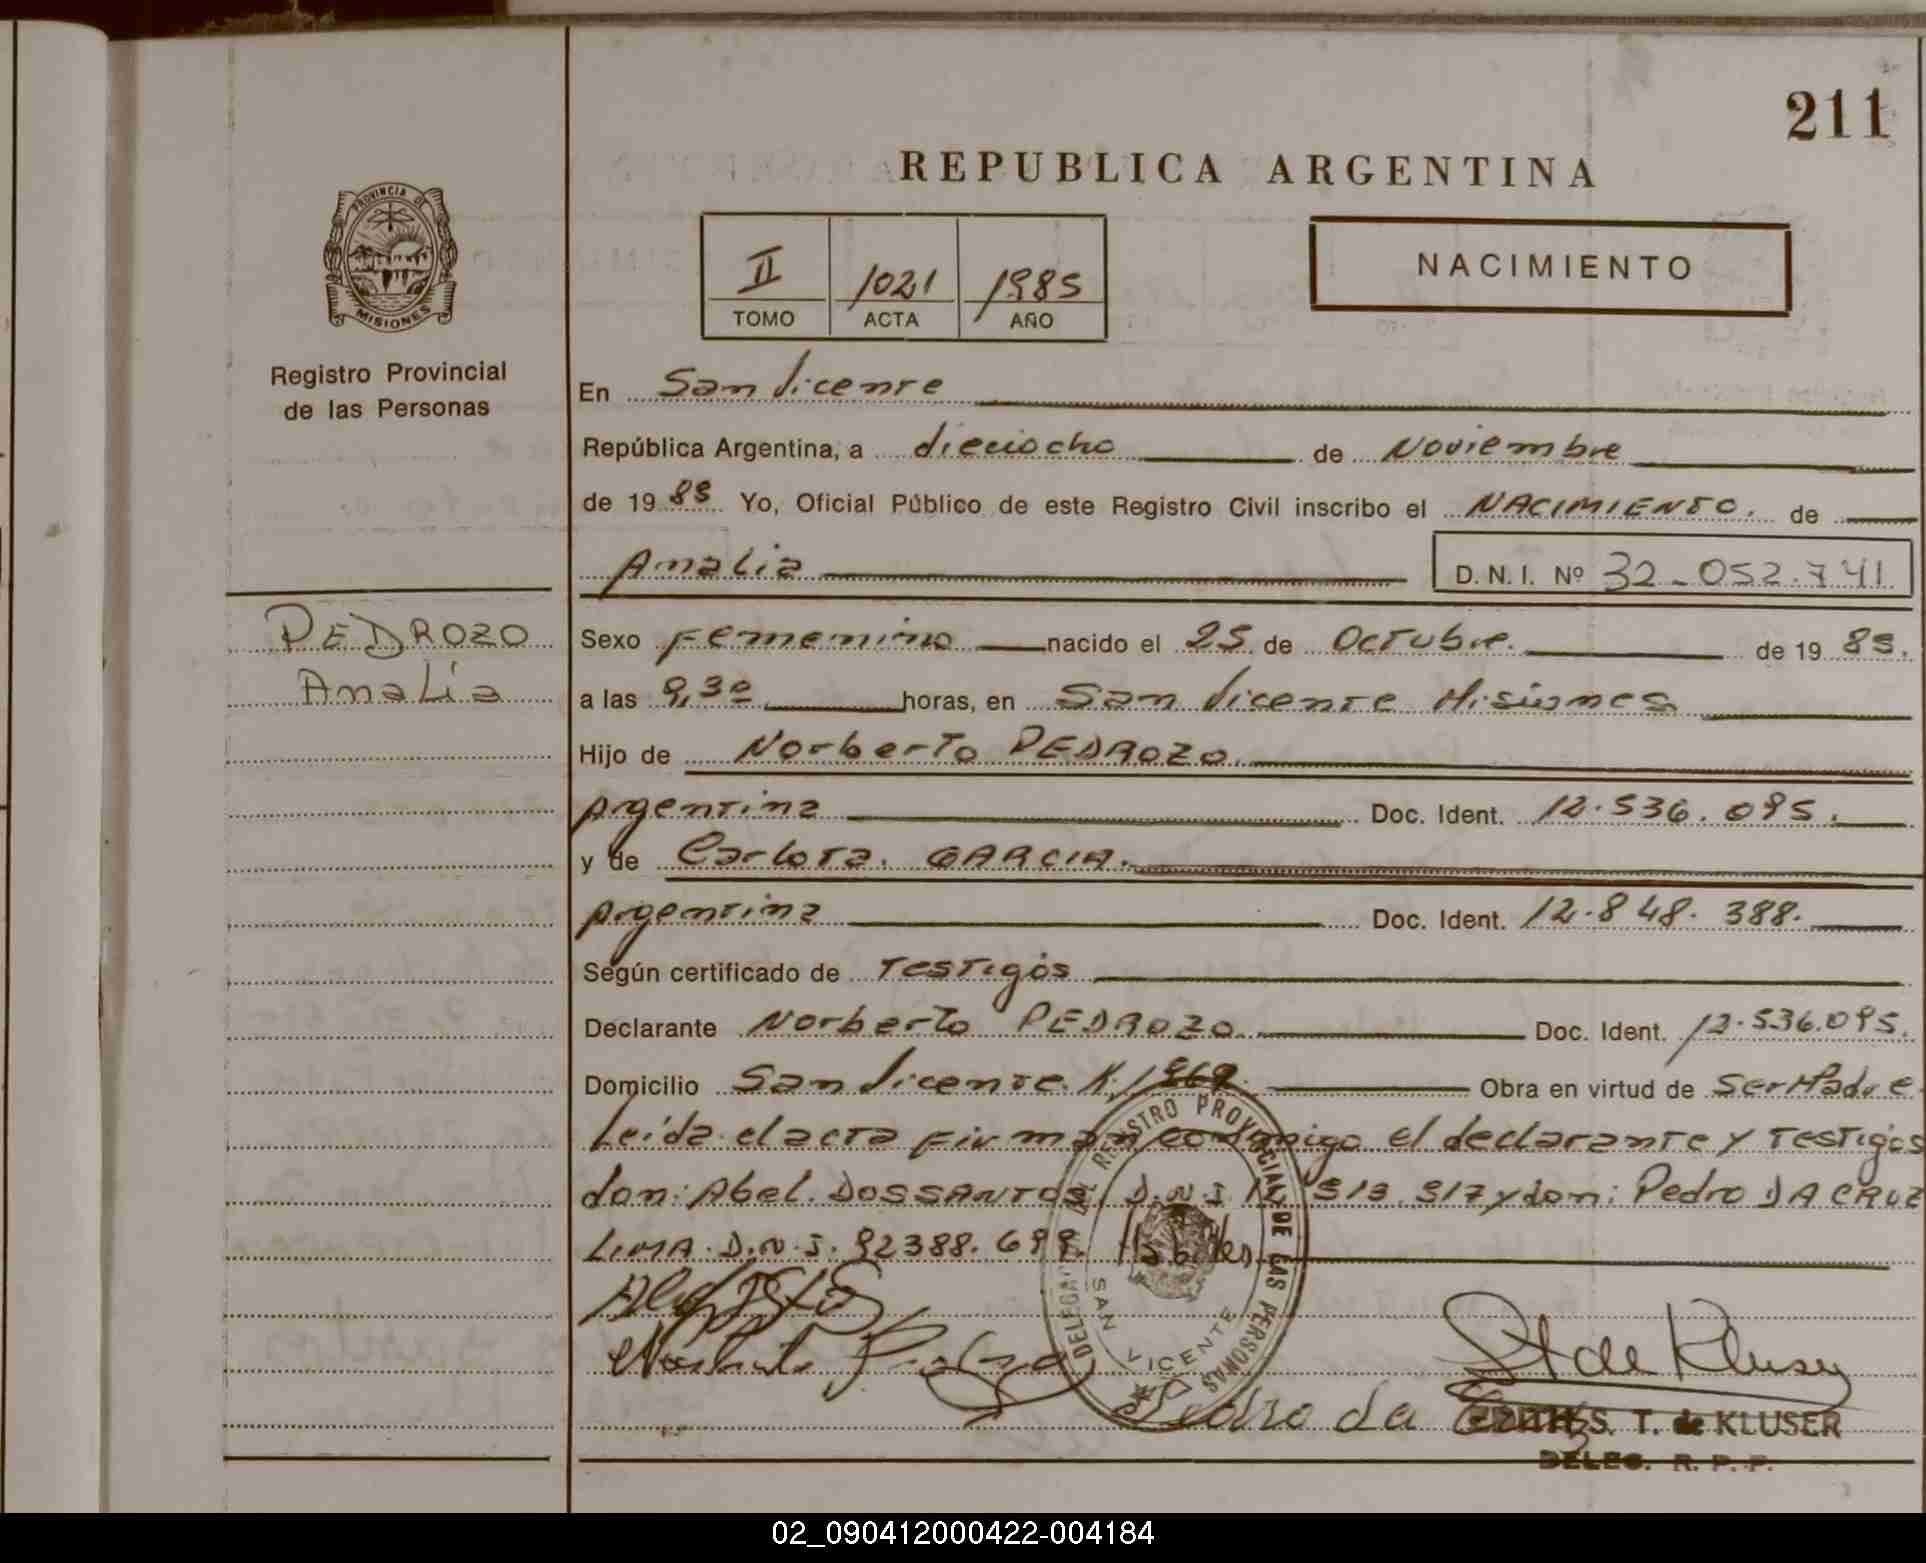 211
REPUBLICA ARGENTINA
PROVINCIA DE
MISIONES
Registro Provincial
de las Personas
II 1021 1985
TOMO ACTA AÑO
NACIMIENTO
En San Vicente
República Argentina, a dieciocho de Noviembre
de 19 85 Yo, Oficial Público de este Registro Civil inscribo el NACIMIENTO. de
Amalia D. N. I. Nº 32-052.741
PEDROZO
Amalia
Sexo Femenino nacido el 25 de Octubre. de 19 85.
a las 9,30 horas, en San Vicente Misiones
Hijo de Norberto PEDROZO.
Argentina Doc. Ident. 12.536.095.
y de Carlota. GARCIA.
Argentina Doc. Ident. 12.848.388.
Según certificado de Testigos
Declarante Norberto PEDROZO. Doc. Ident. 12.536.095.
Domicilio San Vicente. K. Obra en virtud de Ser Padre
Leída el acta firman conmigo el declarante y Testigos
don: Abel. DOSSANTOS D.N.I 517 y don: Pedro DA CRUZ
LIMA. D.N.I. 92388.699. Habiles
DELEGA REGISTRO PROVINCIAL DE LAS PERSONAS
SAN VICENTE
St de Kluser
Pedro da Cruz
EDITH S. T. de KLUSER
DELEG. R. P. P.
02_090412000422-004184